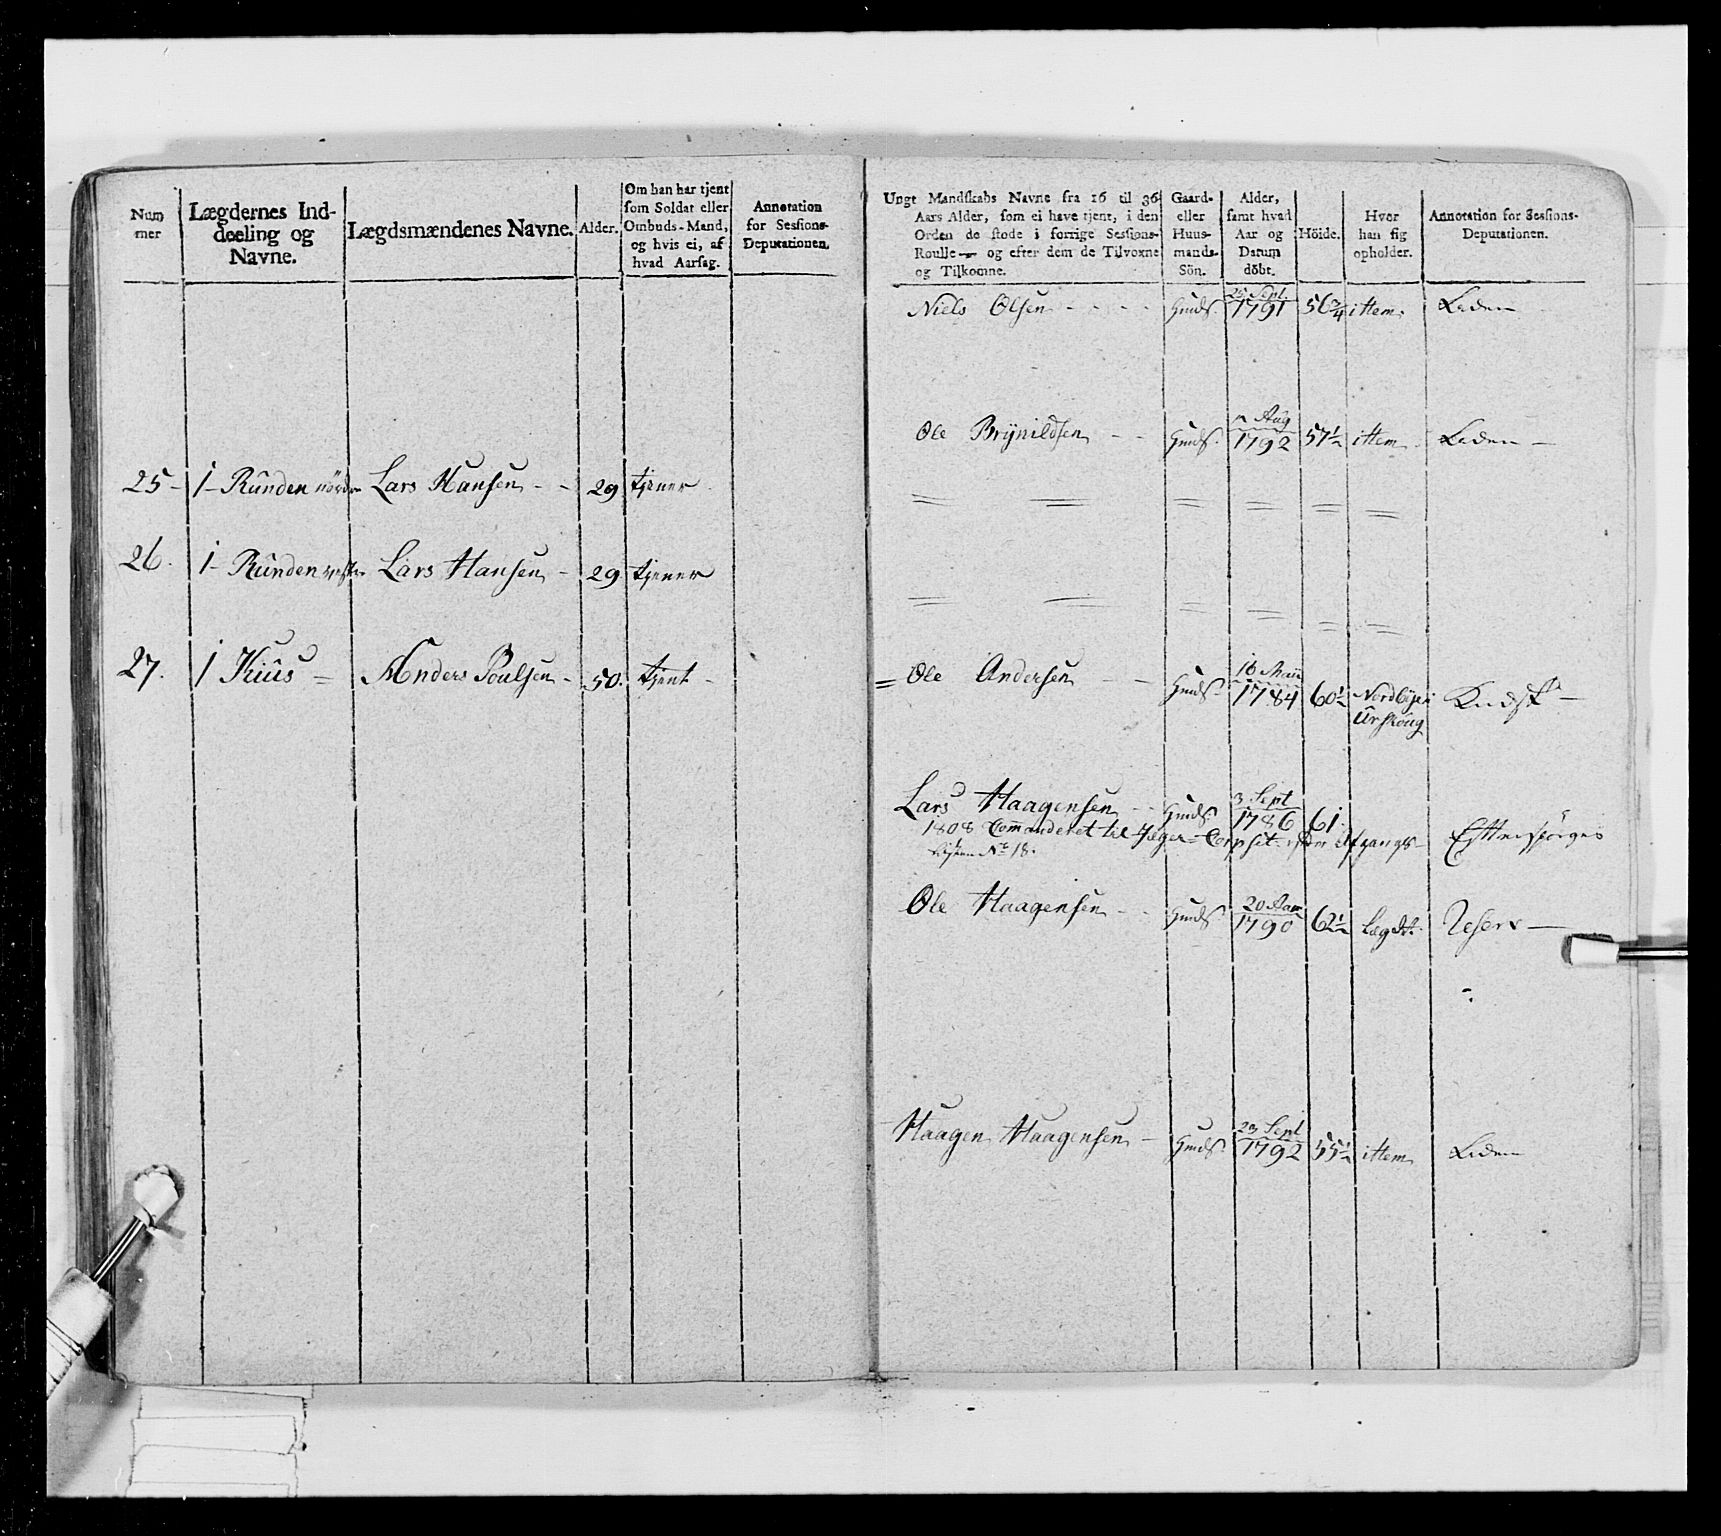 Num
mer
Lægdernes Ind-
deeling og
Navne.
Lægdsmændenes Navne.
Alder.
Om han har tjent
som Soldat eller
Ombuds-Mand,
og hvis ei, af
hvad Aarsag.
Annotation
for Sessions-
Deputationen.
25 - 1 - Runden nordre Lars Hansen - - 29 tjener
26. 1 - Runden vestre Lars Hansen - 29 tjener
27. 1 Kius - Anders Poulsen - 50. tjent -
Ungt Mandskabs Navne fra 16 til 36
Aars Alder, som ei have tjent, i den
Orden de stode i forrige Sessions-
Roulle — og efter dem de Tilvoxne
og Tilkomne.
Gaard-
eller
Huus-
mands-
Sön.
Alder,
samt hvad
Aar og
Datum
döbt.
Höide.
Hvor
han sig
opholder.
Annotation for Sessions-
Deputationen.
Sept.
Niels Olsen - - - - Huuds. 1791 56 3/4 ittem Liden
Aug
Ole Brynildsen - - Huuds. 1792 57 1/2 ittem Liden —
= = = = = =
= = = = = =
16 Maii
= Ole Andersen - - Huuds. 1784 60 1/2 Nordbye i
Urskoug
3 Sept
Lars Haagensen - - Huuds. 1786 61.
1808 Commanderet til Jæger-Corpset Afgangs- Efterspörges
Listen No 18.
20
Ole Haagensen - - Huuds 1790 62 1/2 Lægdt. Reserv —
23 Sept
Haagen Haagensen - Huuds. 1792 55 1/2 ittem Liden